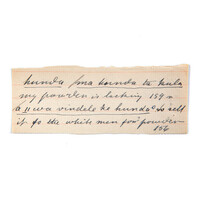 hunda fma hunda te kula
my powder is lacking 159
a u wa vindele ko hunda to sell
it to the white men for powder
156